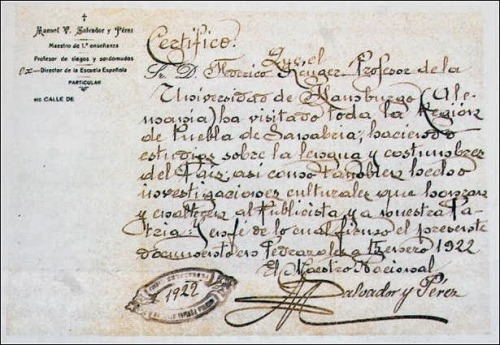 Manuel V. Salvador y Pérez
Maestro de 1ª enseñanza
Profesor de ciegos y sordomudos
Ex—Director de la Escuela Española
PARTICULAR
CALLE DE
Certifico: Que el
Sr. D. Krüger Profesor de la
Universidad de Hamburgo (Ale-
mania) ha visitado toda la Región
de Puebla de Sanabria; haciendo
estudios sobre la lengua y costumbres
del País, asi como tambien hecho
investigaciones culturales que honran
y enaltecen al Publicista y a nuestra Pa-
tria. Y en fe de lo cual firmo el presente
documento en a Febrero 1922
El Maestro Nacional
Salvador y Pérez
1922